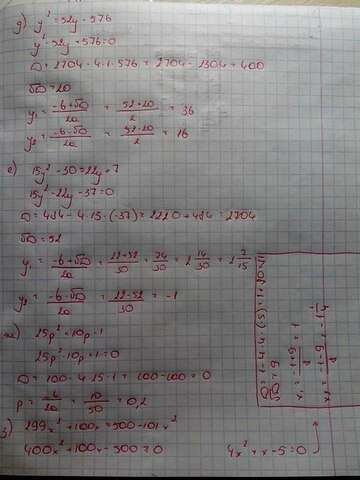 д) y² = 52y - 576
y² - 52y + 576 = 0
D = 2704 - 4·1·576 = 2704 - 2304 = 400
√D = 20
y₁ = (-b+√D)/2a = (52+20)/2 = 36
y₂ = (-b-√D)/2a = (52-20)/2 = 16
е) 15y² - 30 = 22y + 7
15y² - 22y - 37 = 0
D = 484 - 4·15·(-37) = 2220 + 484 = 2704
√D = 52
y₁ = (-b+√D)/2a = (22+52)/30 = 74/30 = 2 14/30 = 2 7/15
y₂ = (-b-√D)/2a = (22-52)/30 = -1
ж) 25p² = 10p - 1
25p² - 10p + 1 = 0
D = 100 - 4·25·1 = 100 - 100 = 0
p = -b/2a = 10/50 = 0,2
з) 299x² + 100x = 500 - 101x²
400x² + 100x - 500 = 0
4x² + x - 5 = 0
D = 1 - 4·4·(-5) = 1 + 80 = 81
√D = 9
x₁ = (-1+9)/8 = 1
x₂ = (-1-9)/8 = -1 1/4